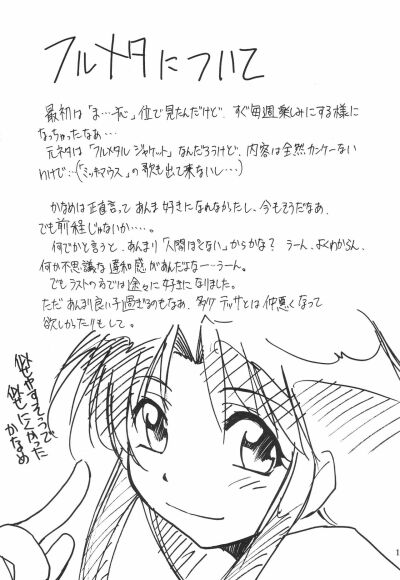 フルメタについて
最初は「ま…ずじ」位で見たんだけど、すぐ毎週楽しみにする様に
なっちゃったなあ…
元ネタは「フルメタルジャケット」なんだろうけど、内容は全然カンケーない
わけで…(「ミッキマウス」の歌も出て来ないし…)
かなめは正直言ってあんま好きになれなかたし、今もそうだなあ、
でも前程じゃないか…。
何でかと言うと、あんまり「人間はとない」からかな？うーん、よくわからん、
何か不思議な違和感があんだよなー…うーん。
でもラストの方では途々に好きになりました。
ただあんまり良い子過ぎるのもなあ、テッサとは仲悪くなって
欲しかったりもして。
似せやすそうで
似せにくかった
かなめ
1